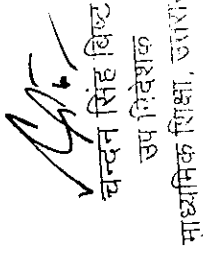 चन्दन सिंह बिष्ट
उप निदेशक
माध्यमिक शिक्षा,